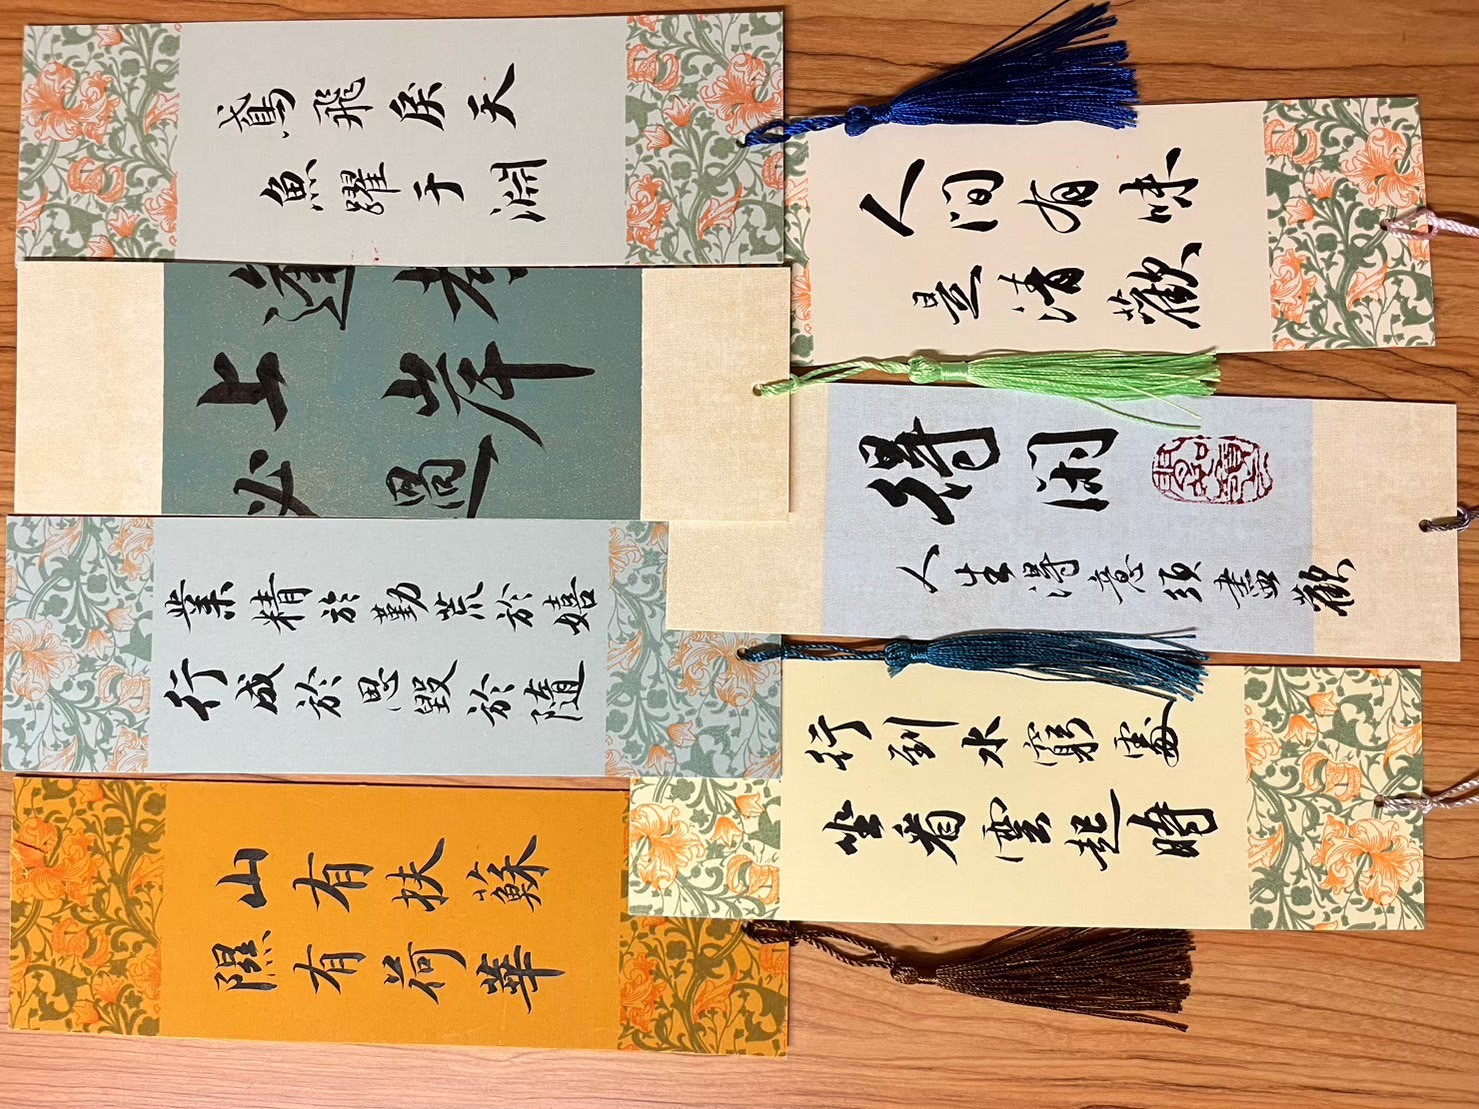 鳶飛戾天
魚躍于淵
逢考
上岸
必過
業精於勤荒於嬉
行成於思毀於隨
山有扶蘇
隰有荷華
人间有味
是清歡
得闲
人生得意須盡歡
行到水窮處
坐看雲起時